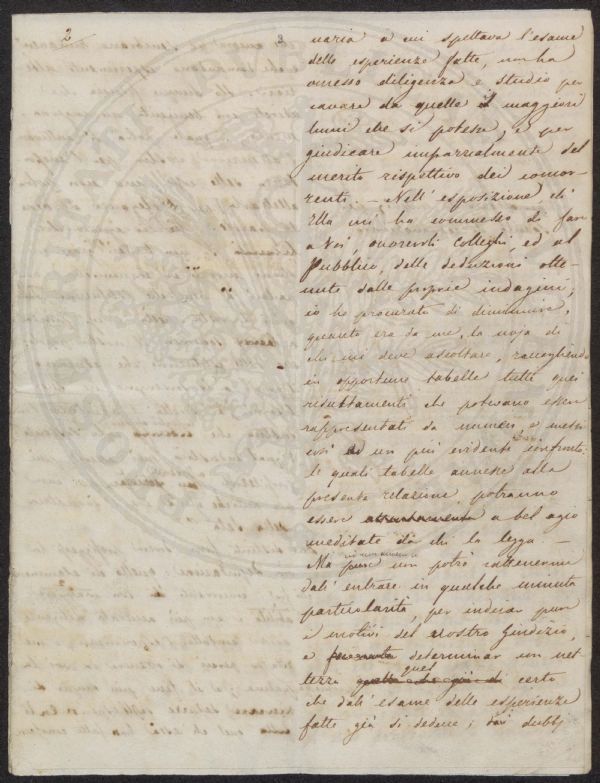 2
naria a cui spettava l'esame
delle esperienze fatte, non ha
omesso diligenza e studio per
cavare da quelle i maggiori
lumi che si potesse, e per
giudicare imparzialmente del
merito rispettivo dei concor-
renti. – Nell'esposizione, ch'
Ella mi ha commesso di fare
a Voi, onorevoli colleghi, ed al
Pubblico, delle deduzioni otte-
nute dalle proprie indagini,
io ho procurato di diminuire,
quanto era da me, la noja di
chi mi deve ascoltare, raccogliendo
in opportune tabelle tutti quei
risultamenti che potevano essere
rappresentati da numeri, o messi
così ad un più evidente confronto:
le quali tabelle annesse alla
presente relazione, potranno
essere a bel agio
meditate da chi la legga. –
Ma pure non potrò rattenermi
dall'entrare in qualche minuta
particolarità, per indicar pure
i motivi del nostro Giudizio,
e determinar con net-
tezza quel certo
che dall'esame delle esperienze
fatte già si deduce; i dubbj